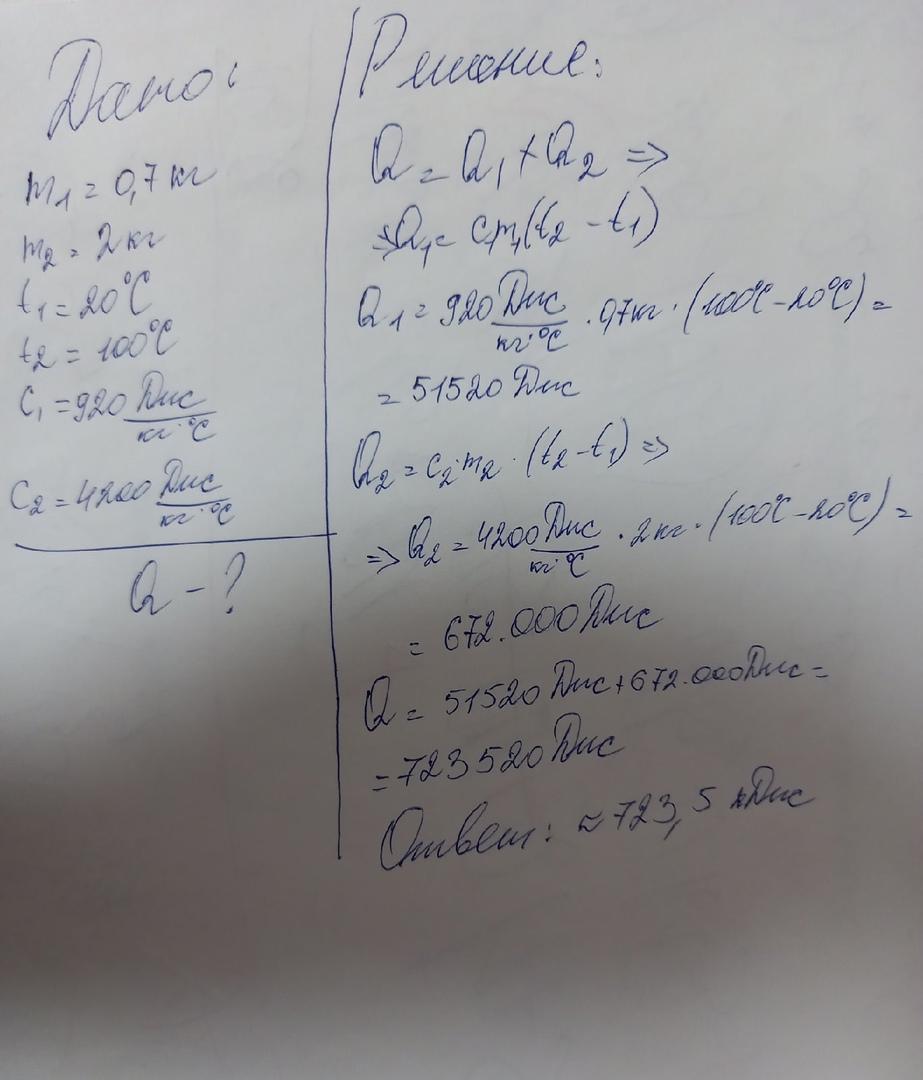 Дано:
m₁ = 0,7 кг
m₂ = 2 кг
t₁ = 20°C
t₂ = 100°C
C₁ = 920 Дж/кг·°C
C₂ = 4200 Дж/кг·°C
Q - ?
Решение:
Q = Q₁ + Q₂ =>
=> Q₁ = c₁m₁(t₂ - t₁)
Q₁ = 920 Дж/кг·°C · 0,7кг · (100°C - 20°C) =
= 51520 Дж
Q₂ = c₂·m₂ · (t₂ - t₁) =>
=> Q₂ = 4200 Дж/кг·°C · 2кг · (100°C - 20°C) =
= 672.000 Дж
Q = 51520 Дж + 672.000 Дж =
= 723520 Дж
Ответ: ≈ 723,5 кДж